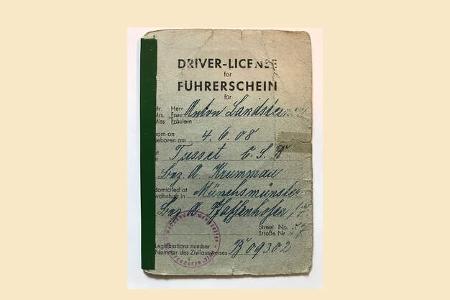 DRIVER-LICENSE
for
FÜHRERSCHEIN
für
Mr. Herr
Mrs. Frau Anton
Miss Fräulein
born on
geboren am 4. 6. 08
Tusset C.S.R
Bez. A. Krummau
domiciled at
wohnhaft in Münchsmünster
Bez. A. Pfaffenhofen
Street No.
Straße Nr.
Legitimations number
Nummer des Zivilausweises B 09302